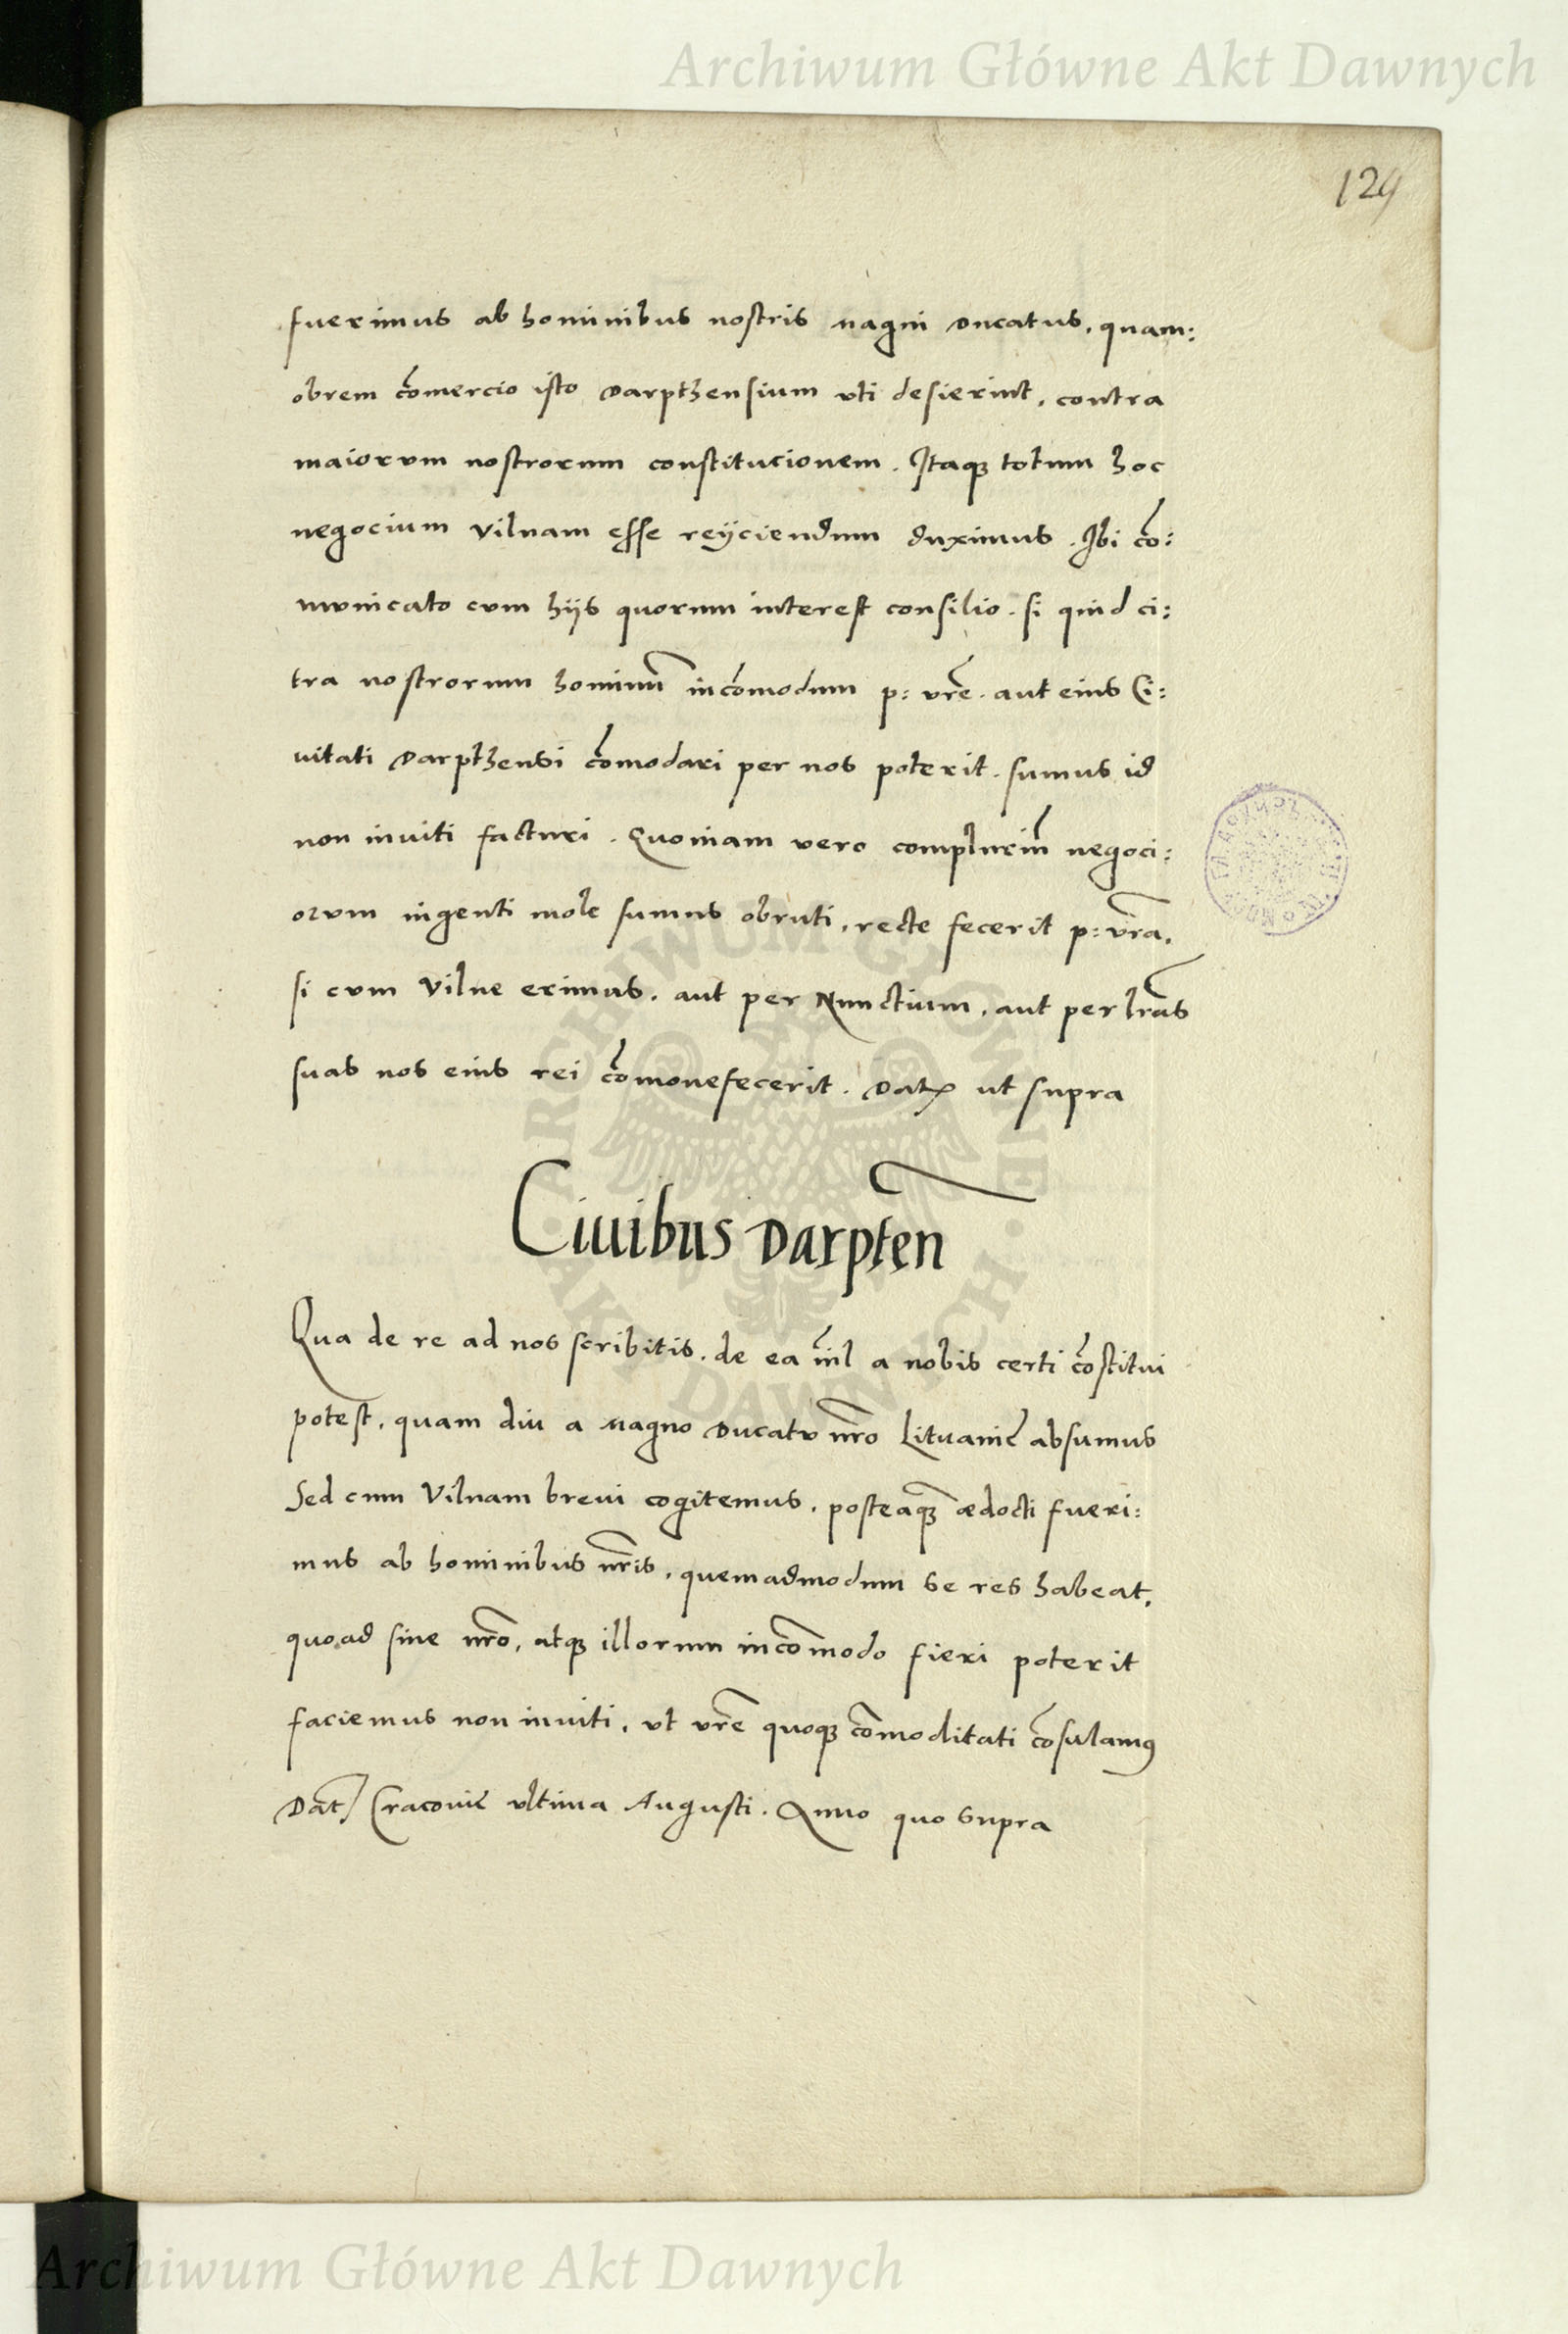 Archiwum Główne Akt Dawnych
129
fuerimus ab hominibus nostris magni Ducatus, quam:
obrem co͂mercio isto Darpthensium vti desierint, contra
maiorvm nostrorum constitucionem. Itaqꝫ totum hoc
negocium Vilnam esse reÿciendum duximus. Ibi co͂:
mvnicato cvm hÿs quorum interest consilio. si quid ci:
tra nostrorum hominu͂ inco͂modum p: vr͂e. aut eius Ci:
uitati Darpthensi co͂modari per nos poterit. sumus id
non inuiti facturi. Quoniam vero compluriu͂ negoci:
orvm ingenti mole sumus obruti, recte fecerit p: vr͂a,
si cvm Vilne erimus, aut per Nunctium, aut per lr͂as
suas nos eius rei co͂monefecerit. Dat͂ ut supra
Ciuibus Darpten͂
Qua de re ad nos scribitis, de ea nil͂ a nobis certi co͂stitui
potest, quam diu a magno Ducatv nr͂o Lituanię absumus
Sed cum Vilnam breui cogitemus, posteaqꝫ͂ ædocti fueri:
mus ab hominibus nr͂is, quemadmodum se res habeat,
quoad sine nr͂o, atqꝫ illorum inco͂modo fieri poterit
faciemus non inuiti, vt vr͂e quoqꝫ co͂moditati co͂sulamꝰ
Dat͂ Cracouię vltima Augusti. Anno quo supra
ARCHIWUM GŁÓWNE
AKT DAWNYCH
Archiwum Główne Akt Dawnych